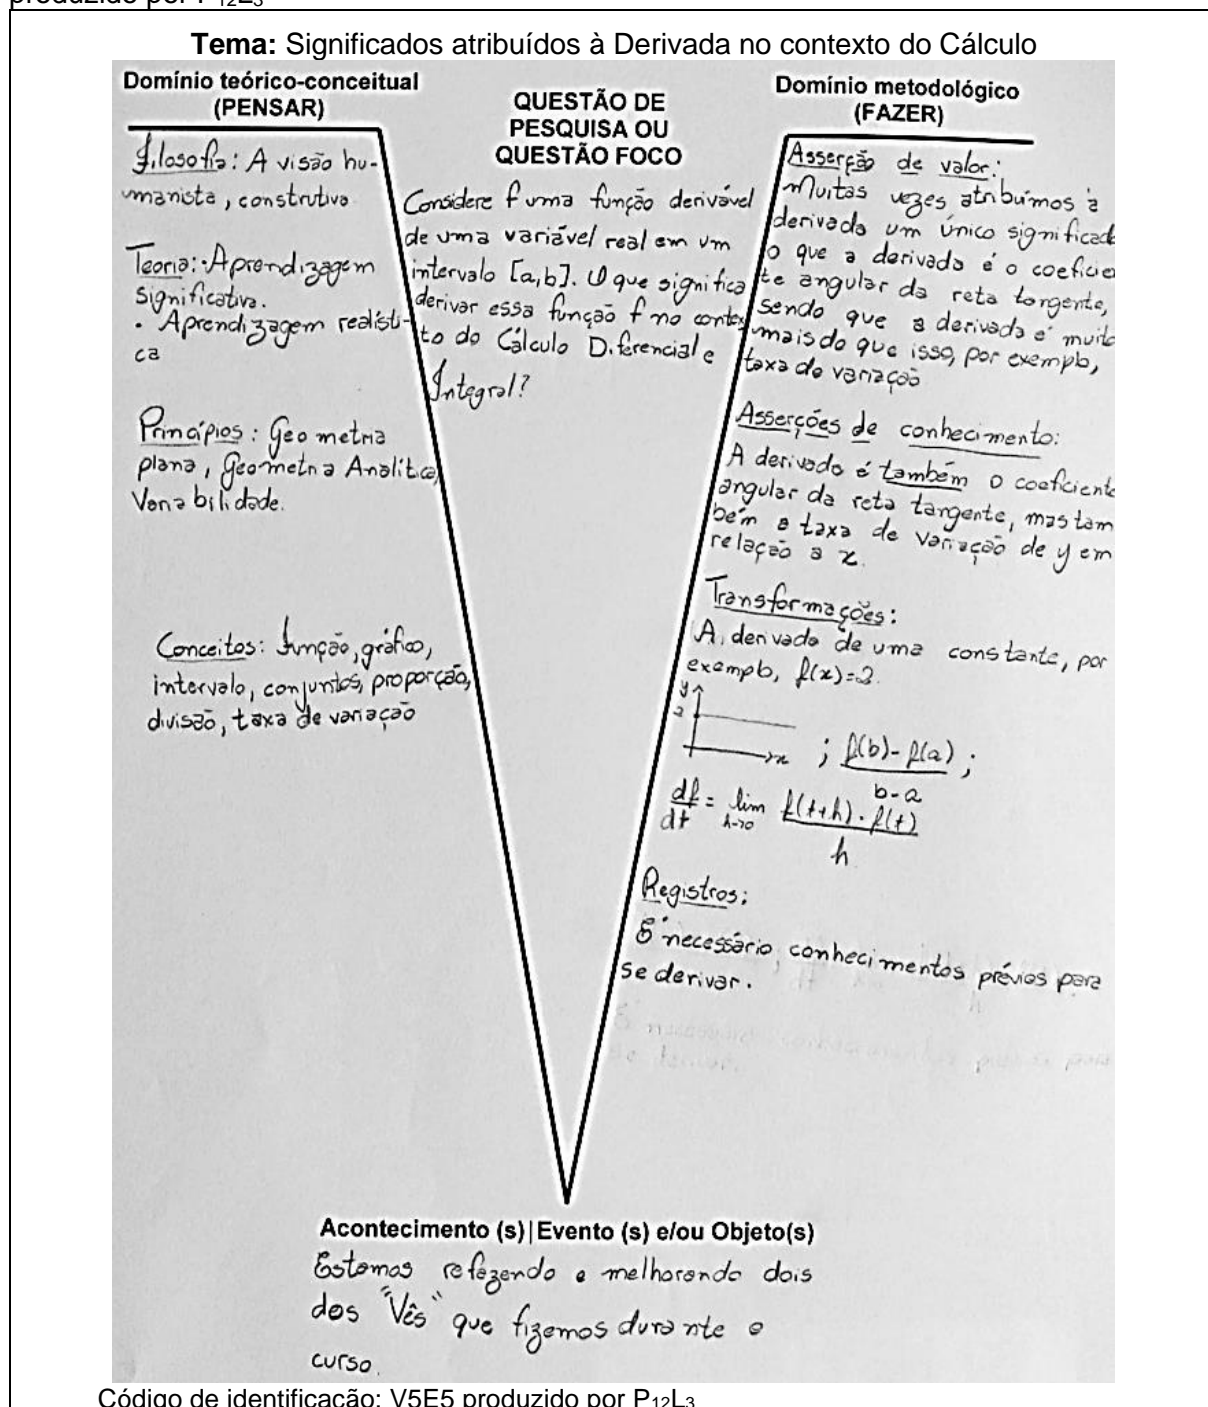 produzido por P₁₂L₃
Tema: Significados atribuídos à Derivada no contexto do Cálculo
Domínio teórico-conceitual
(PENSAR)
Filosofia: A visão hu-
manista, construtiva
Teoria: · Aprendizagem
significativa.
· Aprendizagem realísti-
ca
Princípios: Geometria
plana, Geometria Analítica,
Variabilidade.
Conceitos: Função, gráfico,
intervalo, conjuntos, proporção,
divisão, taxa de variação
QUESTÃO DE
PESQUISA OU
QUESTÃO FOCO
Considere f uma função derivável
de uma variável real em um
intervalo [a,b]. O que significa
derivar essa função f no contex
to do Cálculo Diferencial e
Integral?
Domínio metodológico
(FAZER)
Asserção de valor:
Muitas vezes atribuímos à
derivada um único significad
o que a derivada é o coeficien
te angular da reta tangente,
sendo que a derivada é muito
mais do que isso, por exemplo,
taxa de variação
Asserções de conhecimento:
A derivada é também o coeficiente
angular da reta tangente, mas tam
bém a taxa de variação de y em
relação a x.
Transformações:
A derivada de uma constante, por
exemplo, f(x)=2.
y
2
x
; f(b)-f(a) ;
b-a
df/dt = lim h→0 f(t+h) · f(t)
h
Registros:
É necessário conhecimentos prévios para
se derivar.
Acontecimento (s)|Evento (s) e/ou Objeto(s)
Estamos refazendo e melhorando dois
dos "Vês" que fizemos durante o
curso.
Código de identificação: V5E5 produzido por P₁₂L₃